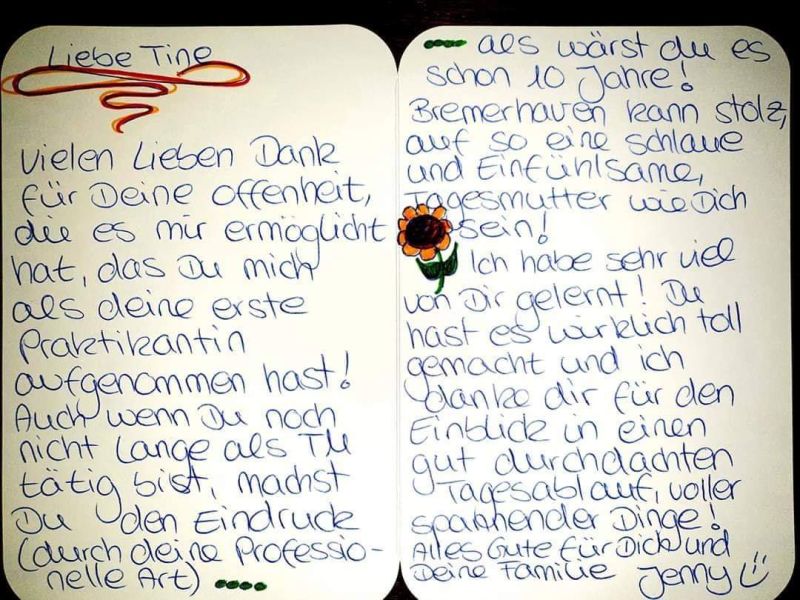 Liebe Tine
Vielen Lieben Dank
für Deine Offenheit,
die es mir ermöglicht
hat, das Du mich
als deine erste
Praktikantin
aufgenommen hast!
Auch wenn Du noch
nicht Lange als TM
tätig bist, machst
Du den Eindruck
(durch deine Professio-
nelle Art)
als wärst du es
schon 10 Jahre!
Bremerhaven kann stolz,
auf so eine schlaue
und Einfühlsame,
Tagesmutter wie Dich
sein!
Ich habe sehr viel
von Dir gelernt! Du
hast es wirklich toll
gemacht und ich
danke dir für den
Einblick in einen
gut durchdachten
Tagesablauf, voller
spannender Dinge!
Alles Gute für Dich und
Deine Familie Jenny